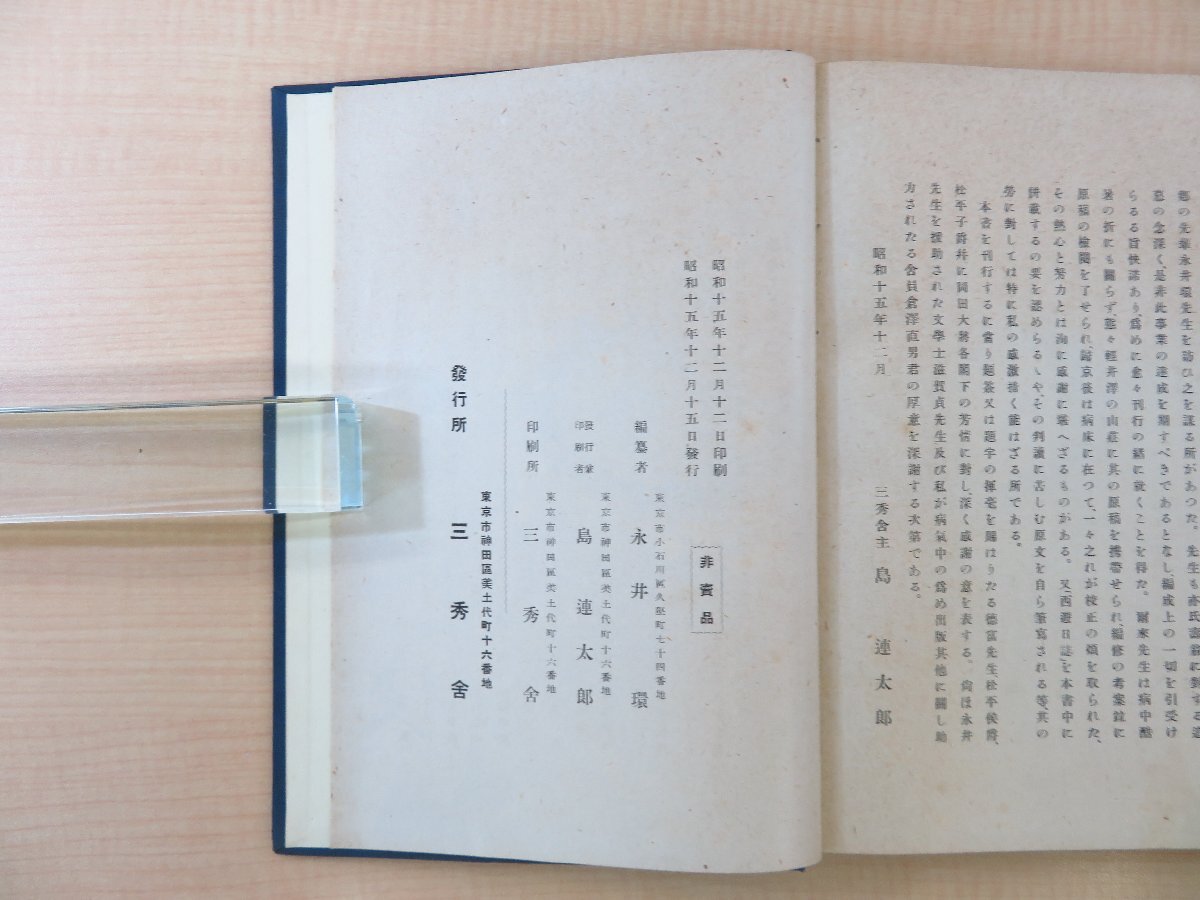 鄕の先輩永井環先生を訪ひ之を謀る所があつた。先生も亦氏
の念深く、是非此事業の達成を期すべきであるとなし、編成上の一切を引受け
らるる旨快諾あり、爲めに愈々刊行の緒に就くことを得た。爾來先生は病中酷
暑の折にも關らず、態々輕井澤の山莊に其の原稿を携帶せられ、編修の考案並に
原稿の檢閱を了せられ、歸京後は病床に在つて、一々之れが校正の煩を取られた、
その熱心と努力とは洵に感謝に堪へざるものがある。又「西遊日誌」を本書中に
倂載するの要を認めらるゝや、その判讀に苦しむ原文を自ら筆寫される等、其の
勞に對しては特に私の感激措く能はざる所である。
本書を刊行するに當り題簽又は題字の揮毫を賜はりたる德富先生、松平侯爵、
松平子爵幷に岡田大將各閣下の芳情に對し、深く感謝の意を表する。尙ほ永井
先生を援助された文學士滋賀貞先生及び私が病氣中の爲め出版其他に關し助
力されたる舍員倉澤直男君の厚意を深謝する次第である。
昭和十五年十二月
三秀舍主 島 連太郎
非賣品
昭和十五年十二月十二日印刷
昭和十五年十二月十五日發行
東京市小石川區久堅町七十四番地
編纂者 永井環
東京市神田區美土代町十六番地
發行兼印刷者 島連太郎
東京市神田區美土代町十六番地
印刷所 三秀舍
東京市神田區美土代町十六番地
發行所 三秀舍